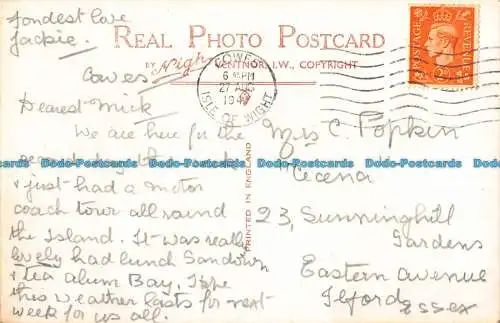 fondest love
Jackie.
REAL PHOTO POSTCARD
BY Nigh VENTNOR, I.W., COPYRIGHT
COWES
6 PM
27 AUG
194
ISLE OF WIGHT
POSTAGE
REVENUE
Cowes
Dearest Mick
We are here for the
day
& just had a motor
coach tour all round
the Island. It was really
lovely had lunch Sandown
& tea Alum Bay. I hope
this weather lasts for next
week for us all.
PRINTED IN ENGLAND
Mrs C. Popkin
23, Sunninghill
Gardens
Eastern Avenue
Ilford Essex
Dodo-Postcards Dodo-Postcards Dodo-Postcards Dodo-Postcards Dodo-Postcards